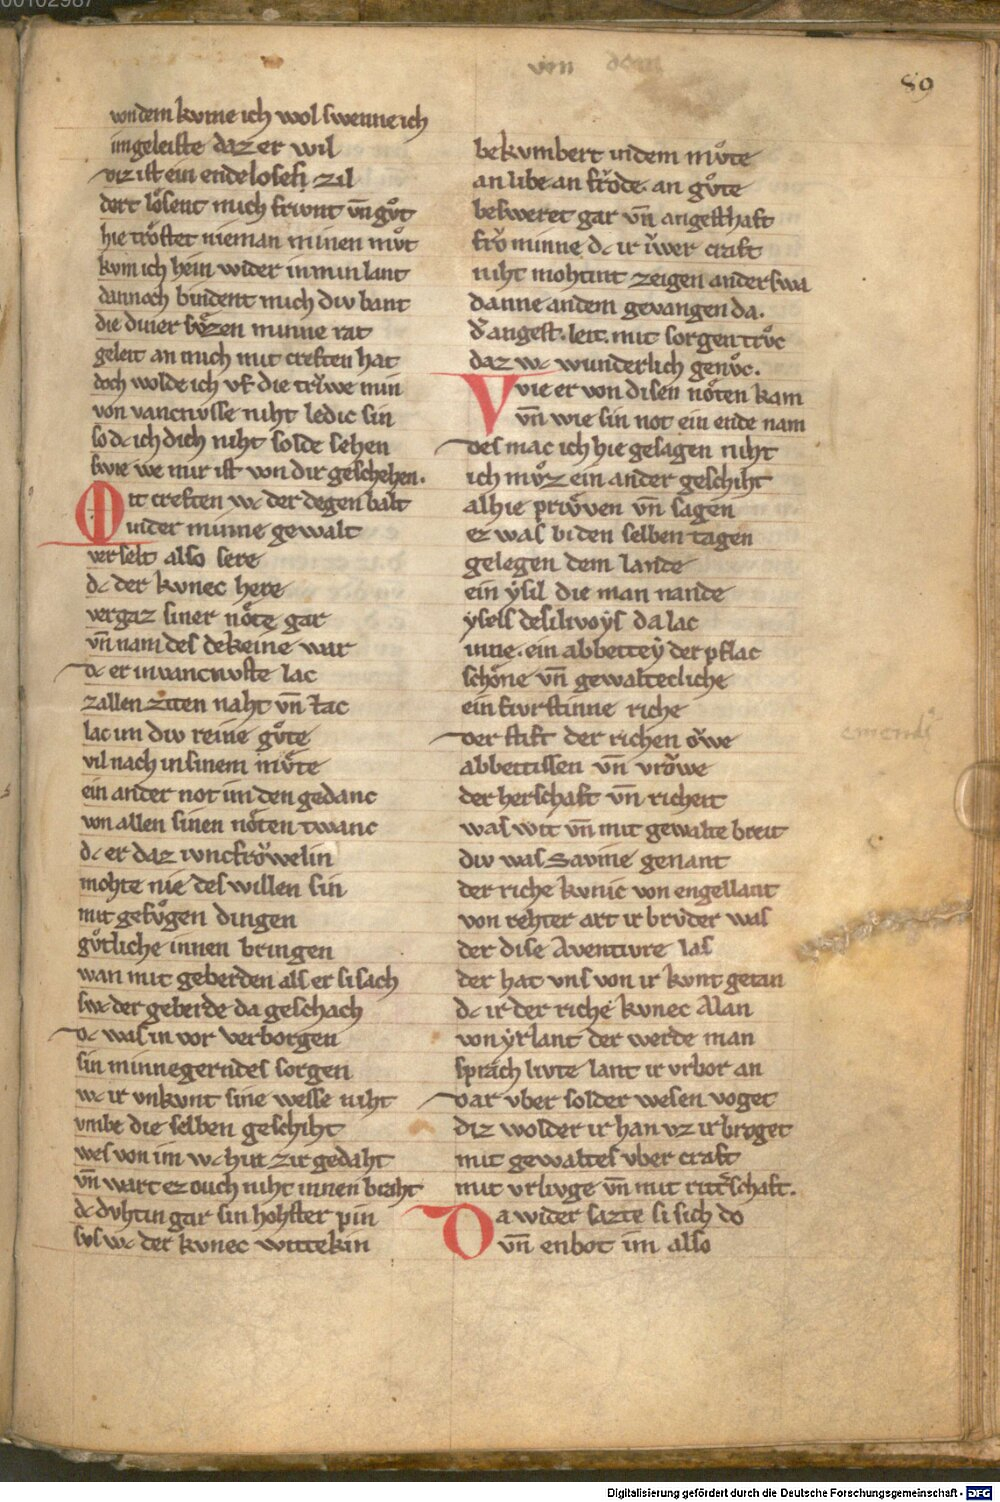 von dem
89
von dem kvme ich wol swenne ich
im geleiste daz er wil
diz ist ein endeloseſ zil
dort loͤsent mich frivnt vn̄ gvͦt
hie troͤstet nieman minen mvͦt
kvm ich hein wider in min lant
dannoch bindent mich div bant
die diner svͤzen minne rat
geleit an mich mit creften hat
doch wolde ich vf die trv̂we min
von vancnvsse niht ledic sin
so dc ich dich niht solde sehen
swie we mir ist von dir geschehen.
Mit creften wc der degen balt
in der minne gewalt
verselt also sere
dc der kvnec here
vergaz siner noͤte gar
vn̄ nam des dekeine war
dc er in vancnvste lac
zallen ziten naht vn̄ tac
lac im div reine gvͦte
vil nach in sinem mvͦte
ein ander not im den gedanc
von allen sinen noͤten twanc
dc er daz ivncfroͮwelin
mohte nie des willen sin
mit gefvͤgen dingen
gvͤtliche innen bringen
wan mit geberden als er si sach
swc der geberde da geschach
dc was in vor verborgen
sin minnegerndes sorgen
wc ir vnkvnt sine wesse niht
vmbe die selben geschiht
wes von im wc hin zir gedaht
vn̄ wart ez ouch niht innen braht
dc dvhtin gar sin hohster pin
svs wc der kvnec wittekin
bekvmbert in dem mvͦte
an libe an froͤde. an gvͦte
besweret gar vn̄ angesthaft
froͮ minne dc ir ivwer craft
niht mohtint zeigen anderswa
danne an dem gevangen da.
d̕ angest. leit. mit sorgen trvͦc
daz wc wunderlich genvͦc.
Wie er von disen noͤten kam
vn̄ wie sin not ein ende nam
des mac ich hie gesagen niht
ich mvͦz ein ander geschiht
alhie prvͤven vn̄ sagen
ez was bi den selben tagen
gelegen dem lande
ein ẏsil die man nande
ysels desilivoẏs da lac
inne. ein abbetteẏ der pflac
schoͤne vn̄ gewaltecliche
ein fivrstinne riche
der stift der richen oͮwe
abbettissen vn̄ vroͮwe
der herschaft vn̄ richeit
was wit vn̄ mit gewalte breit
div was Savine genant
der riche kvnic von engellant
von rehter art ir brvͦder was
der dise Aventivre las
der hat vns von ir kvnt getan
dc ir der riche kvnec Alan
von ẏrlant der werde man
sprach livte lant ir vrbor an
dar vber solder wesen voget
diz wolder ir han vz ir broget
mit gewaltes vber craft
mit vrlivge vn̄ mit ritt̕schaft.
Da wider sazte si sich do
vn̄ enbot im also
Digitalisierung gefördert durch die Deutsche Forschungsgemeinschaft - DFG